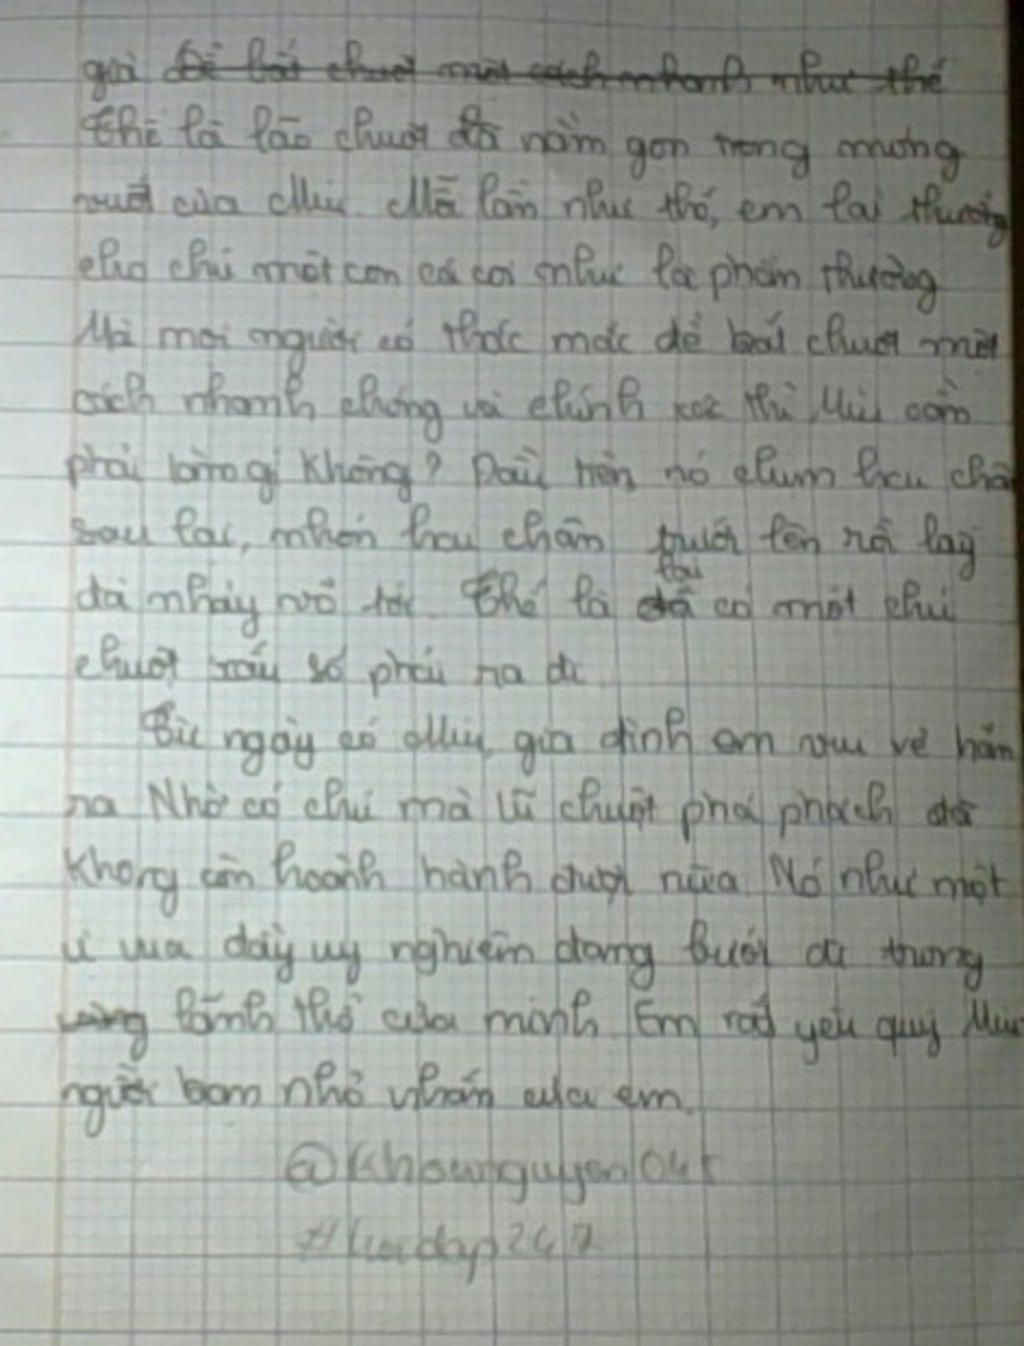 già để bắt chuột một cách nhanh như thế
Thế là lão chuột đã nằm gọn trong móng
vuốt của Miu. Mỗi lần như thế, em lại thưởng
cho chú một con cá coi như là phần thưởng
Mà mọi người có thắc mắc để bắt chuột một
cách nhanh chóng và chính xác thì Miu cần
phải làm gì không? Đầu tiên nó chụm hai chân
sau lại, nhón hai chân trước lên rồi lấy
đà nhảy vồ tới. Thế là lại có một chú
chuột xấu số phải ra đi
Từ ngày có Miu, gia đình em vui vẻ hẳn
ra Nhờ có chú mà lũ chuột phá phách đã
không còn hoành hành được nữa Nó như một
vị vua đầy uy nghiêm đang bước đi trong
lãnh thổ của mình Em rất yêu quý Miu
người bạn nhỏ nhắn của em.
#hoidap247